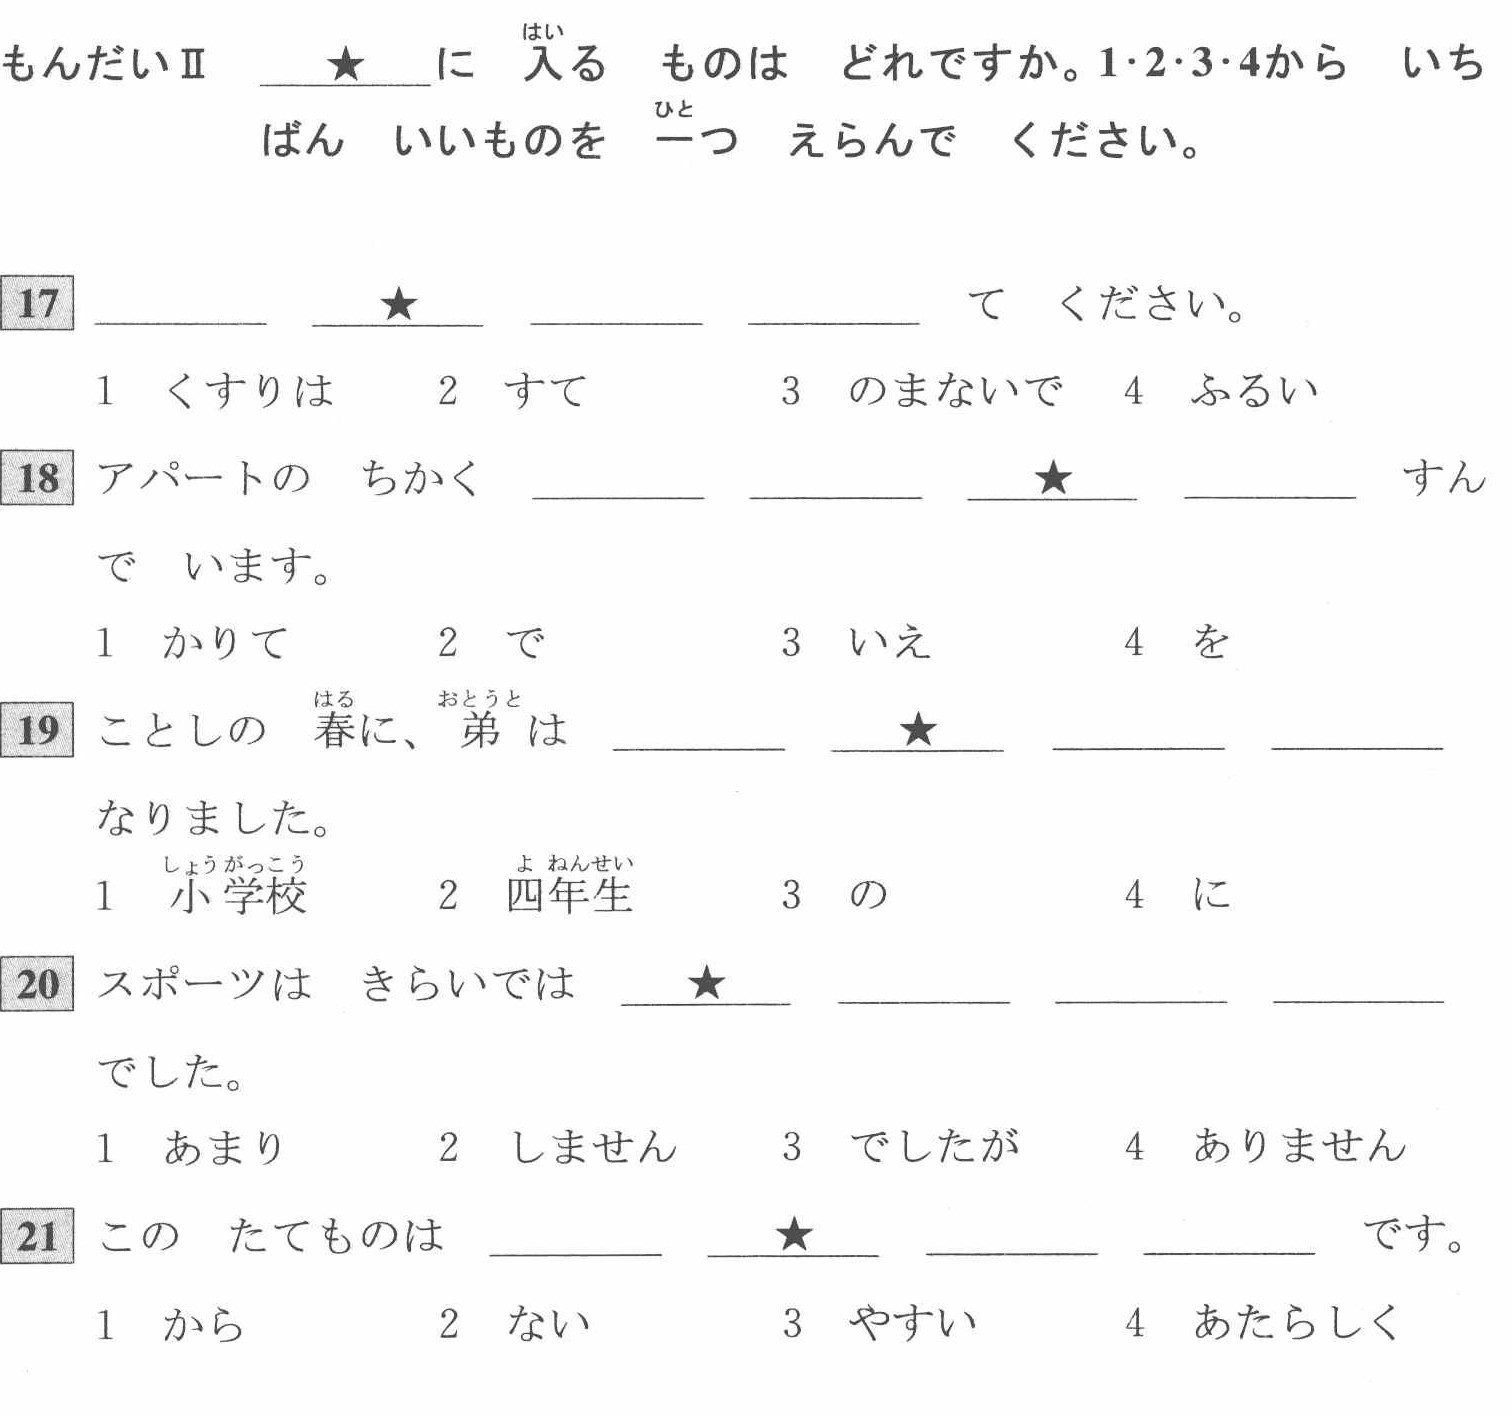 もんだいⅡ ★ に 入る ものは どれですか。1・2・3・4から いち
ばん いいものを 一つ えらんで ください。
17 ★ て ください。
1 くすりは 2 すて 3 のまないで 4 ふるい
18 アパートの ちかく ★ すん
で います。
1 かりて 2 で 3 いえ 4 を
19 ことしの 春に、弟は ★
なりました。
1 小学校 2 四年生 3 の 4 に
20 スポーツは きらいでは ★
でした。
1 あまり 2 しません 3 でしたが 4 ありません
21 この たてものは ★ です。
1 から 2 ない 3 やすい 4 あたらしく